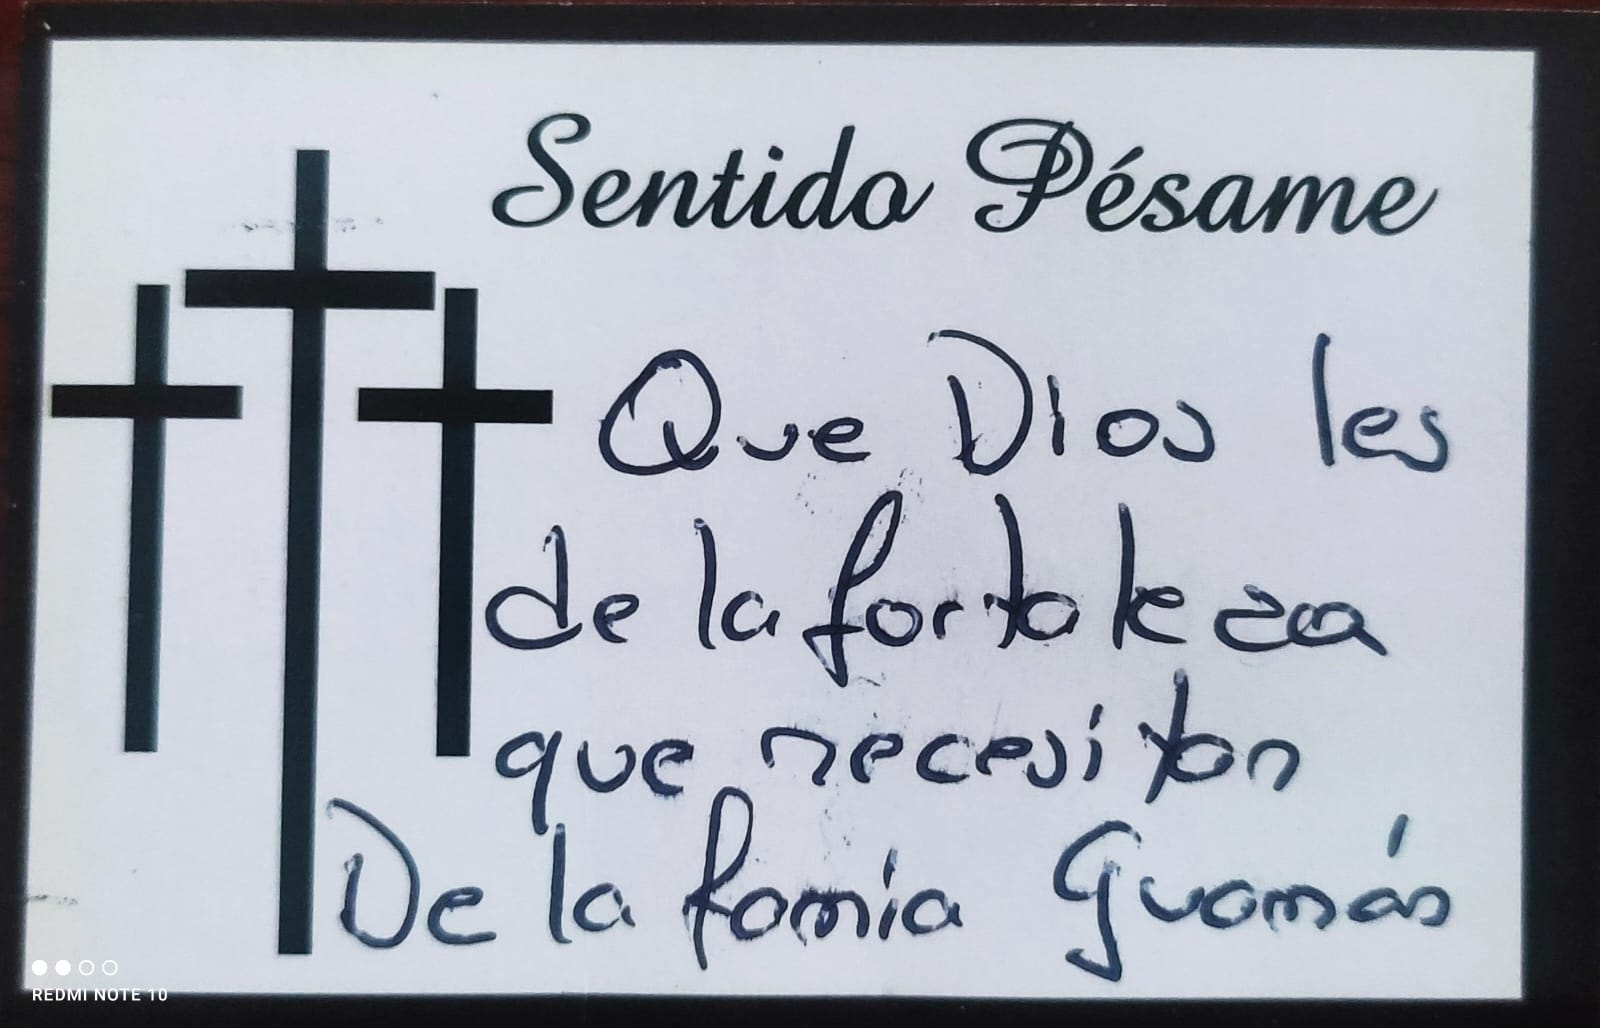 Sentido Pésame
Que Dios les
de la fortaleza
que necesitan
De la famia Guamás
REDMI NOTE 10